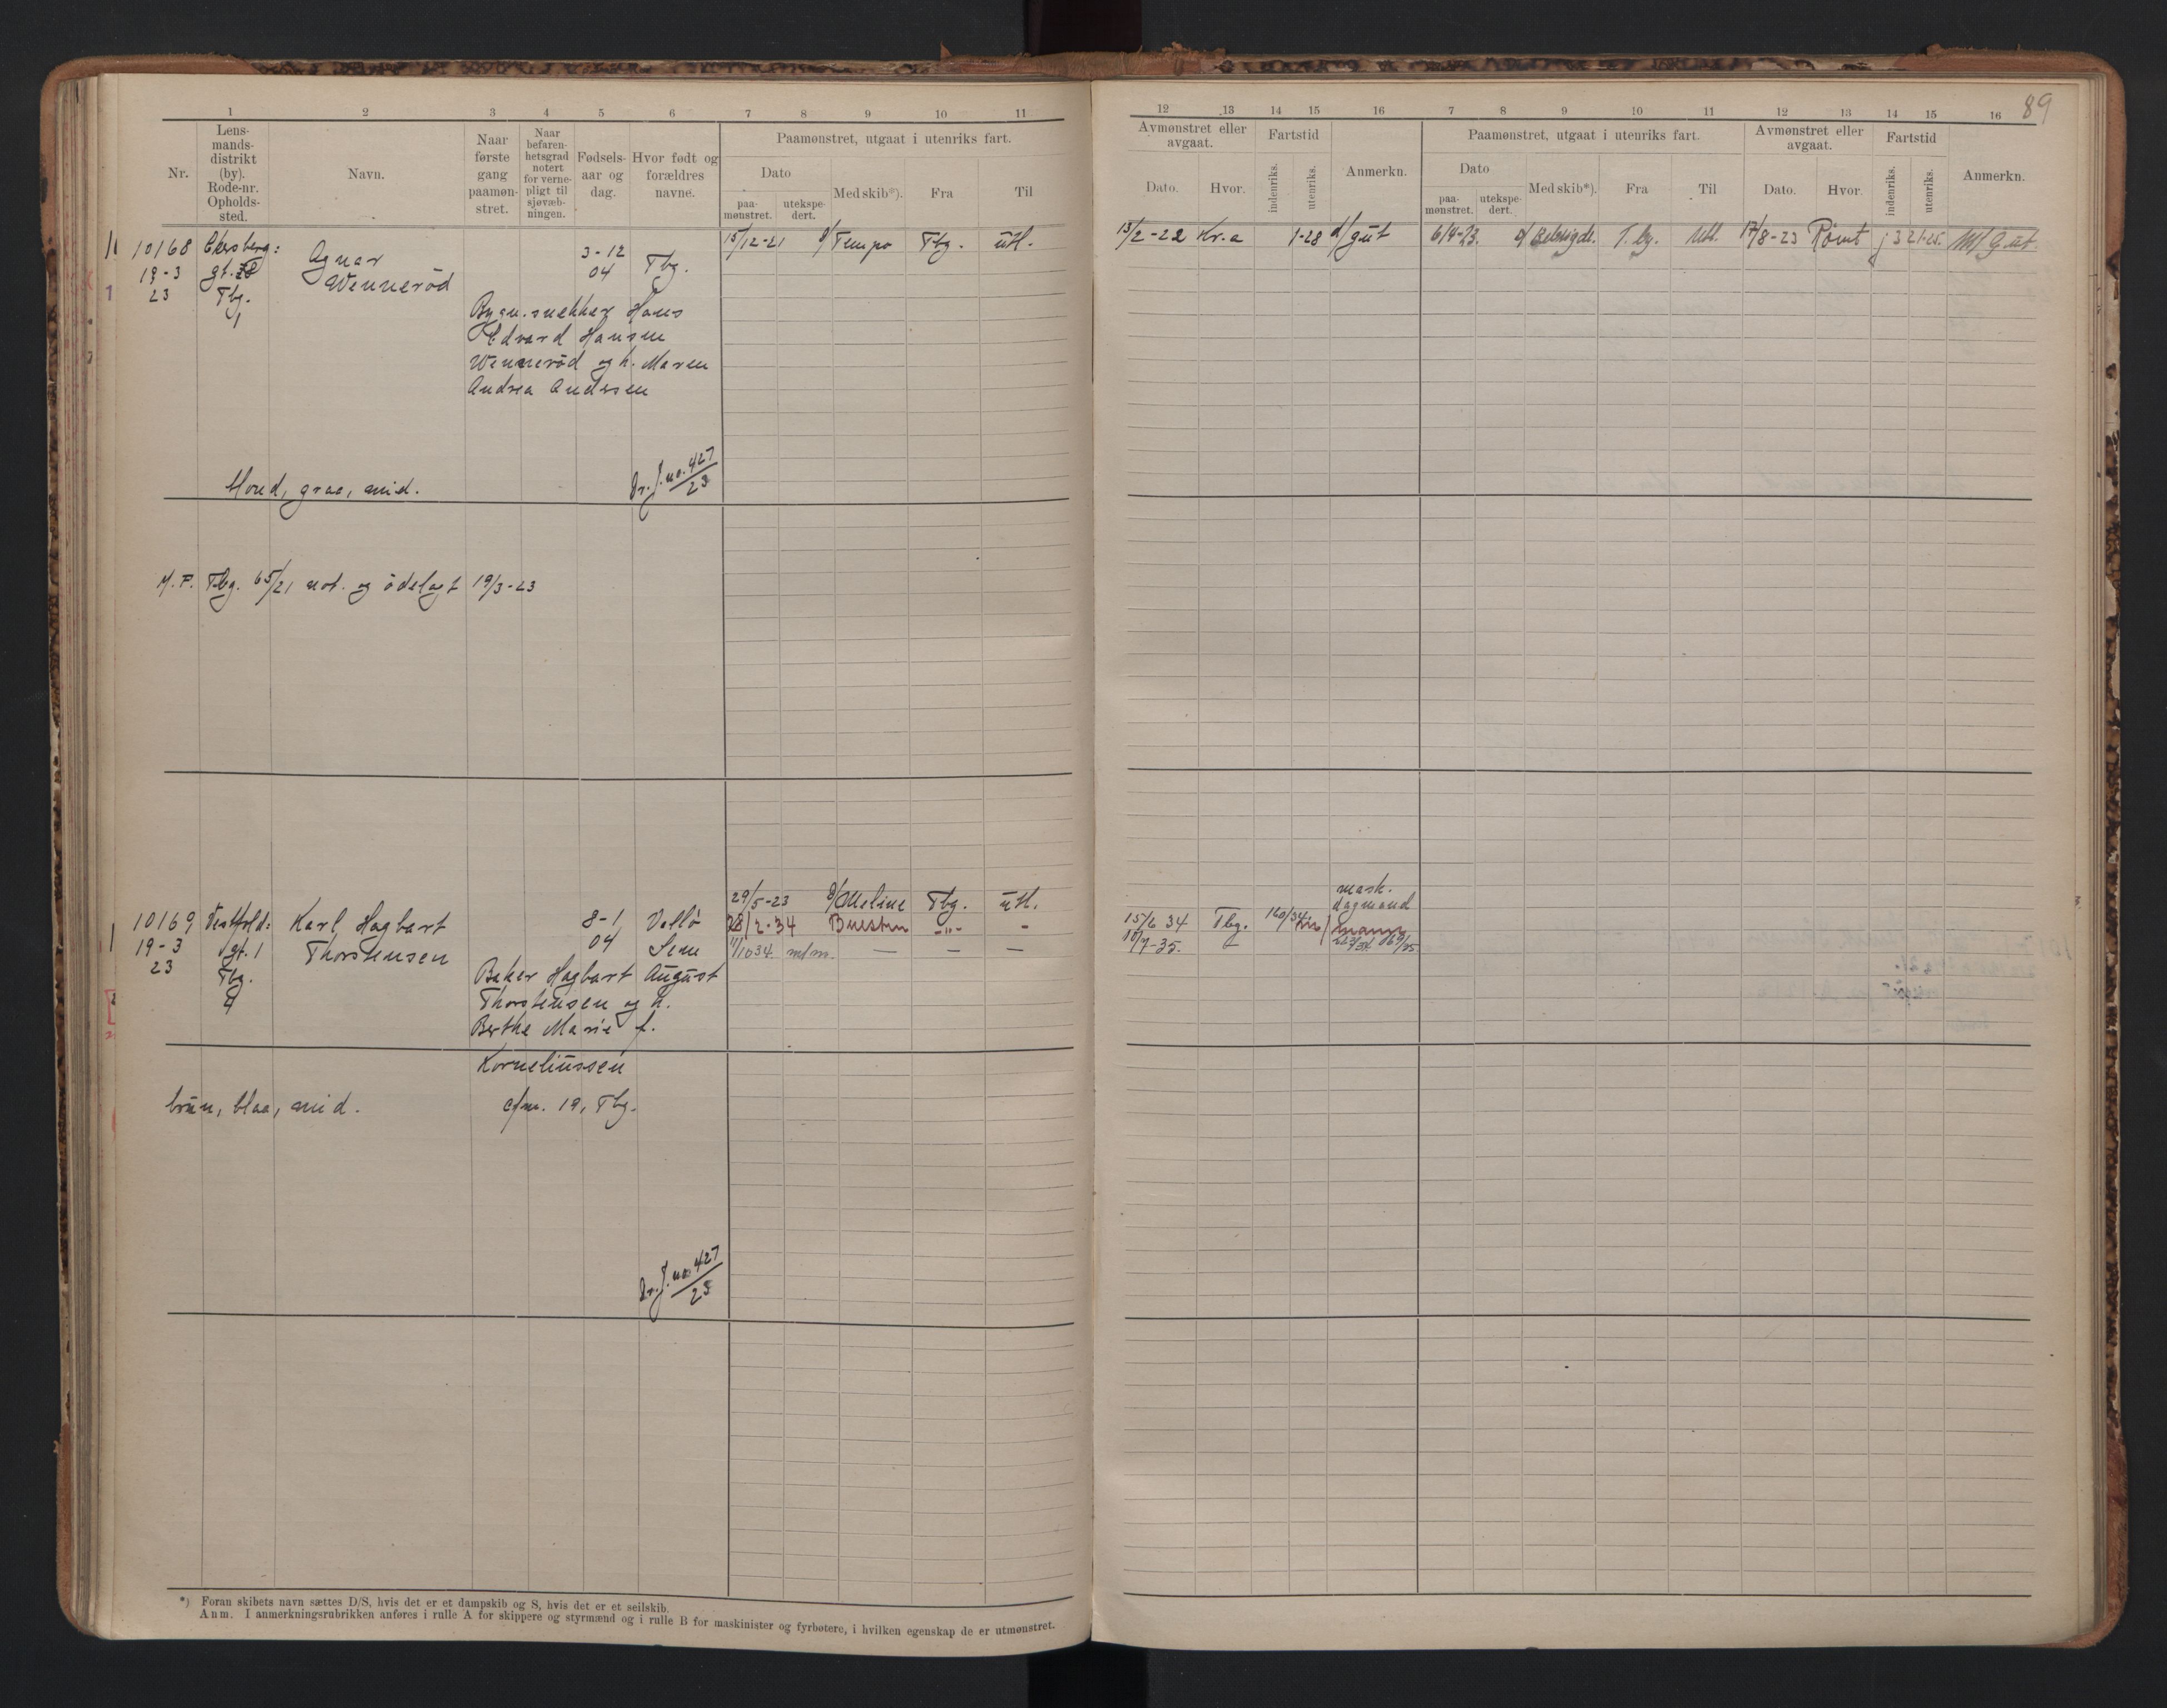 89
1 2 3 4 5 6 7 8 9 10 11
Nr.
Lens-
mands-
distrikt
(by).
Rode-nr.
Opholds-
sted.
Navn.
Naar
første
gang
paamøn-
stret.
Naar
befaren-
hetsgrad
notert
for verne-
pligt til
sjøvæb-
ningen.
Fødsels-
aar og
dag.
Hvor født og
forældres
navne.
Paamønstret, utgaat i utenriks fart.
Dato
paa-
mønstret.
utekspe-
dert.
Med skib*).
Fra
Til
12 13 14 15 16 7 8 9 10 11 12 13 14 15 16
Avmønstret eller
avgaat.
Dato.
Hvor.
Fartstid
indenriks.
utenriks.
Anmerkn.
Paamønstret, utgaat i utenriks fart.
Dato
paa-
mønstret.
utekspe-
dert.
Med skib*).
Fra
Til
Avmønstret eller
avgaat.
Dato.
Hvor.
Fartstid
indenriks.
utenriks.
Anmerkn.
10168
19-3
23
gt.
Tbg.
1
Agnar
Wennerød
3-12
04
Tbg.
Bygn.snekker Hans
Edvard Hansen
Wennerød og h. Maren
Andrea Andersen
15/12-21 Tempo Tbg. utl.
13/2-22 Kr.a 1-28 d/gut 6/4-23. T.bg. Utl. 17/8-23 Rømt
blond, graa, mid.
Jr. J.no. 427/23
M.F. Tbg. 65/21 not. og ödelagt 19/3-23
10169
19-3
23
Vestfold:
gt. 1
Tbg.
4
Karl Hagbart
Thorstensen
8-1
04
Vallö
Sem
Baker Hagbart August
Thorstensen og h.
Berthe Marie f.
Korneliussen
29/5-23 Meline Tbg. utl.
28/2-34 -"- -
1/10 34. — —
mask.
dagmand
15/6 34 Tbg.
10/7-35. —
brun, blaa, mid.
19, Tbg.
Jr. J.no. 427/23
*) Foran skibets navn sættes D/S, hvis det er et dampskib og S, hvis det er et seilskib.
Anm. I anmerkningsrubrikken anføres i rulle A for skippere og styrmænd og i rulle B for maskinister og fyrbøtere, i hvilken egenskap de er utmønstret.